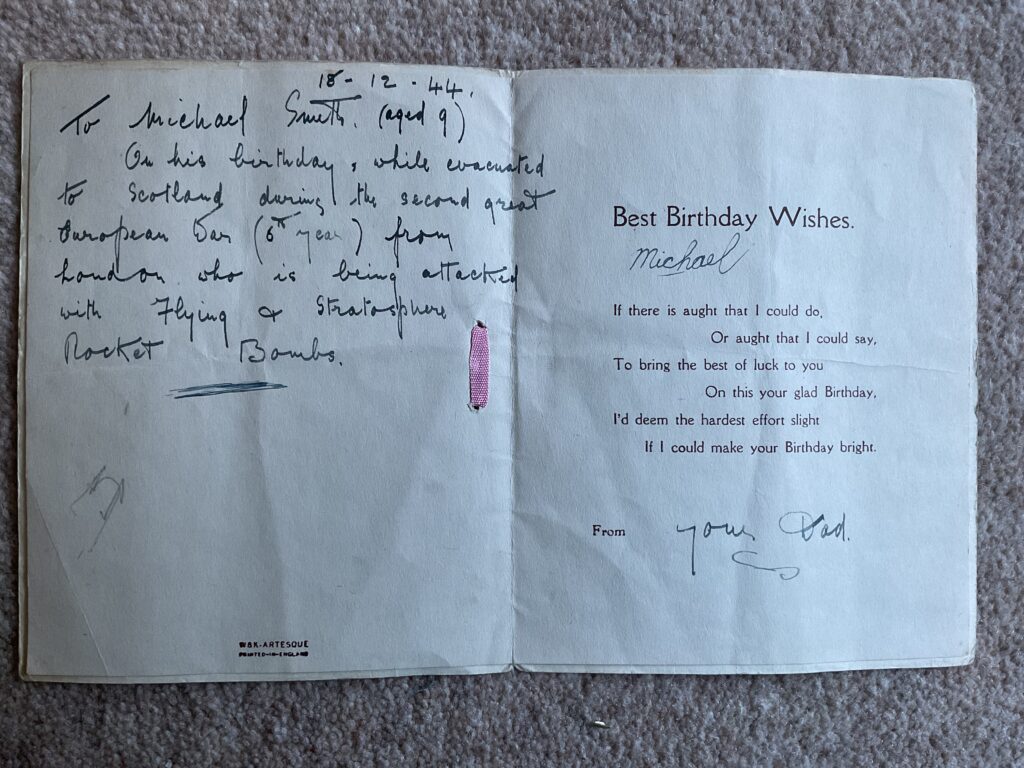 18-12-44.
To Michael Smith. (aged 9)
On his birthday, while evacuated
to Scotland during the second great
European War (6th year) from
London who is being attacked
with Flying & Stratosphere
Rocket Bombs.
W&K-ARTESQUE
PRINTED-IN-ENGLAND
Best Birthday Wishes.
Michael
If there is aught that I could do,
Or aught that I could say,
To bring the best of luck to you
On this your glad Birthday,
I'd deem the hardest effort slight
If I could make your Birthday bright.
From your Dad.